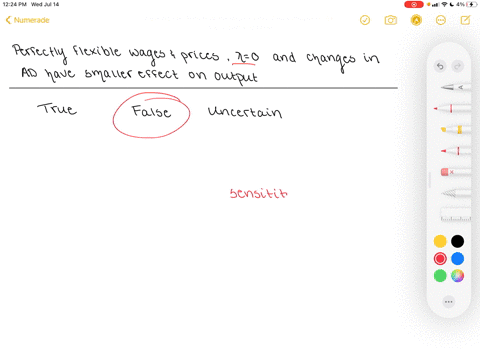 12:24 PM Wed Jul 14
4%
Numerade
Perfectly flexible wages & prices, λ=0 and changes in
AD have smaller effect on output
True False Uncertain
sensitit